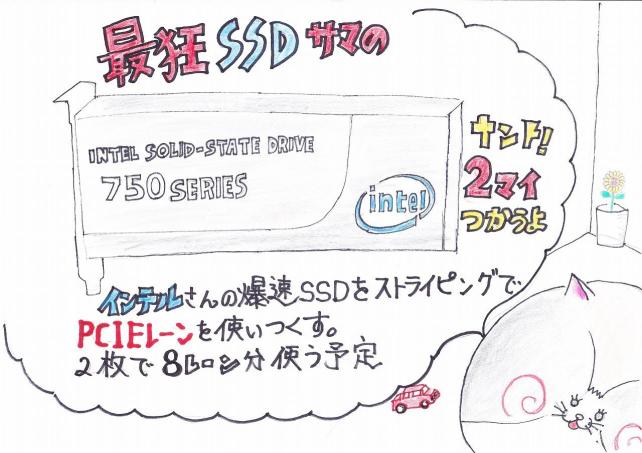 最狂SSDサマの
INTEL SOLID-STATE DRIVE
750 SERIES
intel
ナント!
2マイ
つかうよ
インテルさんの爆速SSDをストライピングで
PCIEレーンを使いつくす。
2枚で8レーン分使う予定